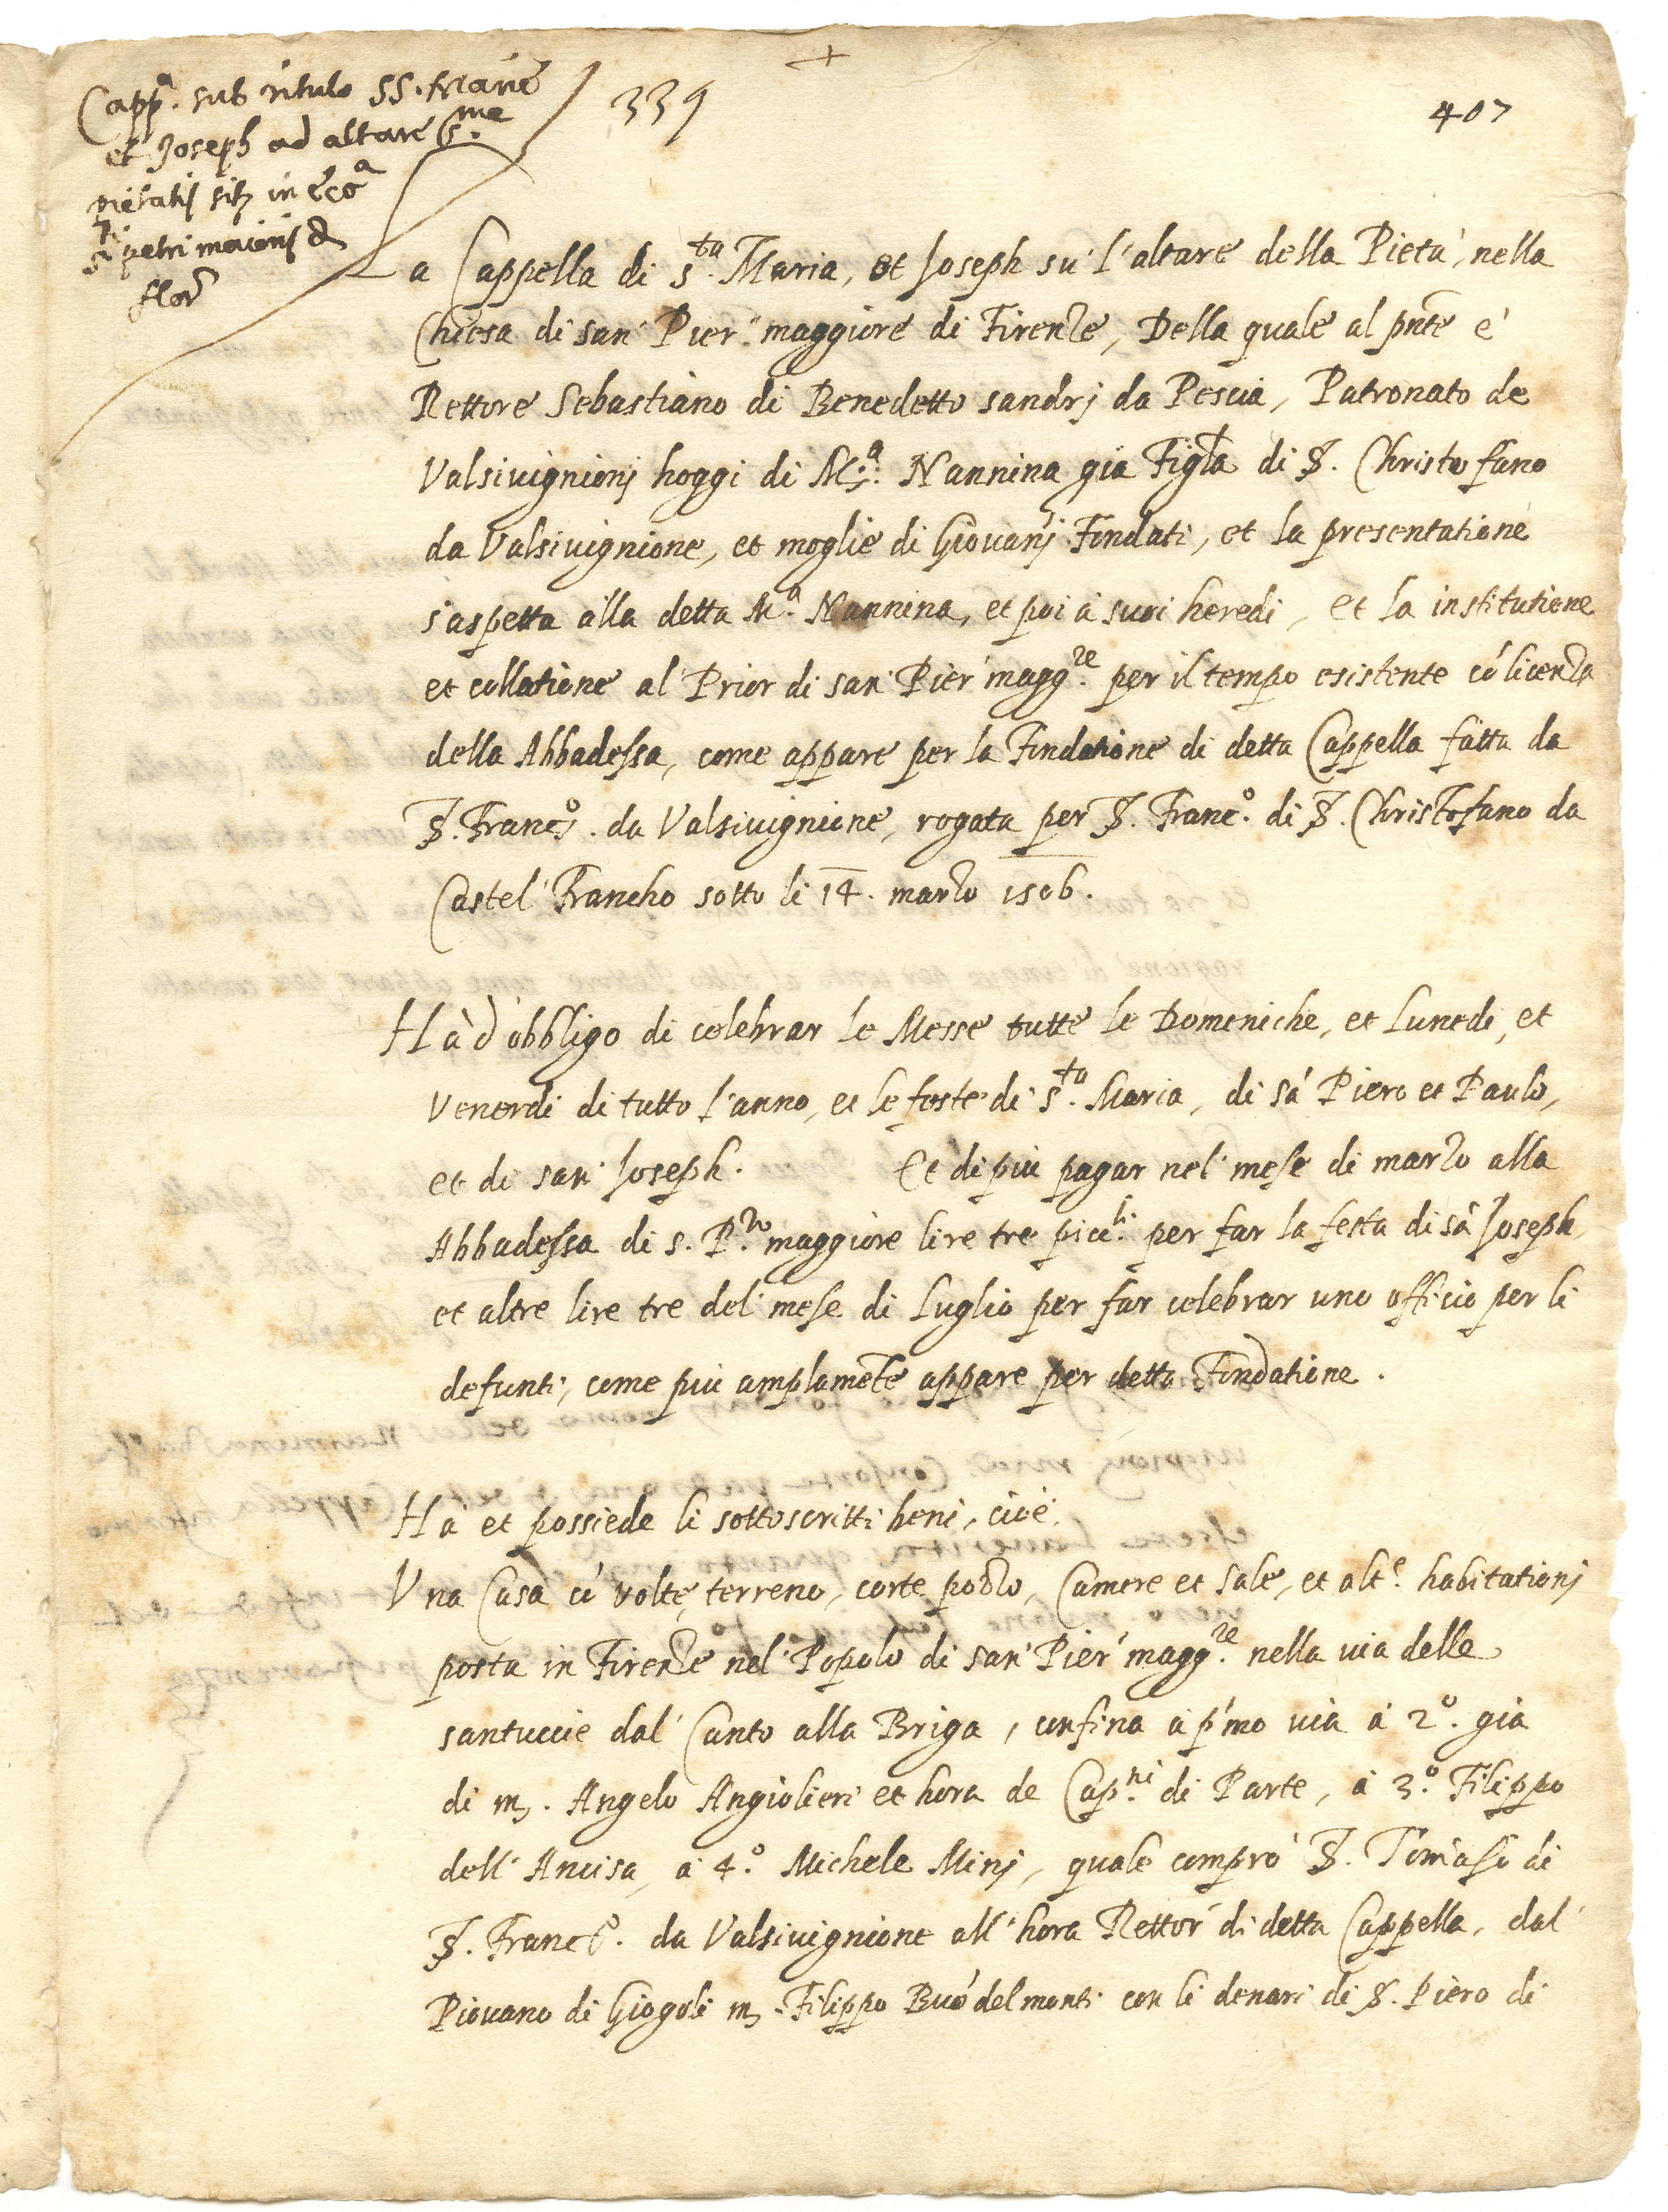 +
339
407
Capp.ª sub titulo SS. Marie
et Joseph ad altare S.me
pietatis sit in Ecc.ª
S.ti petri maioris de
flor
La Cappella di s.ta Maria, et Joseph su l'altare della Pietà, nella
Chiesa di san' Pier' maggiore di Firenze, Della quale al pnte è
Rettore Sebastiano di Benedetto sandrj da Pescia, Patronato de
Valsivignionj hoggi di M.ª Nannina già Figla di S. Christofano
da Valsivignione, et moglie di Giovanj Fondati, et la presentatione
s'aspetta alla detta M.ª Nannina, et poi à suoi heredi, et la institutione
et collatione al Prior di san' Pier' magg.re per il tempo esistente cō licenza
della Abbadessa, come appare per la Fondatione di detta Cappella fatta da
S. Franc.o da Valsivignione, rogata per S. Franc.o di S. Christofano da
Castel' Francho sotto li 14. marzo 1506.
Hà d'obbligo di celebrar le Messe tutte le Domeniche, et Lunedi, et
Venerdi di tutto l'anno, et le feste di s.ta Maria, di sā Piero et Paulo,
et di san' Joseph. Et di più pagar nel' mese di marzo alla
Abbadessa di s. P.ro maggiore lire tre picc.li per far la festa di sā Joseph,
et altre lire tre del' mese di Luglio per far celebrar uno offitio per li
defunti, come più amplamēte appare per detta Fondatione.
Hà et possiede li sottoscritti beni, cioè.
Una Casa cō volte, terreno, corte pozzo, Camere et Sale, et alt.e habitationj
posta in Firenze nel' Popolo di san' Pier' magg.re nella via delle
santuccie dal' Canto alla Briga, confina à p'mo via à 2.o già
di m. Angelo Angiolieri et hora de Cap.ni di Parte, à 3.o Filippo
dell' Ancisa, à 4.o Michele Minj, quale comprò S. Tomaso di
S. Franc.o da Valsivignione all' hora Rettor' di detta Cappella, dal'
Piovano di Giogoli m. Filippo Buōdelmonti con li denari di S. Piero di